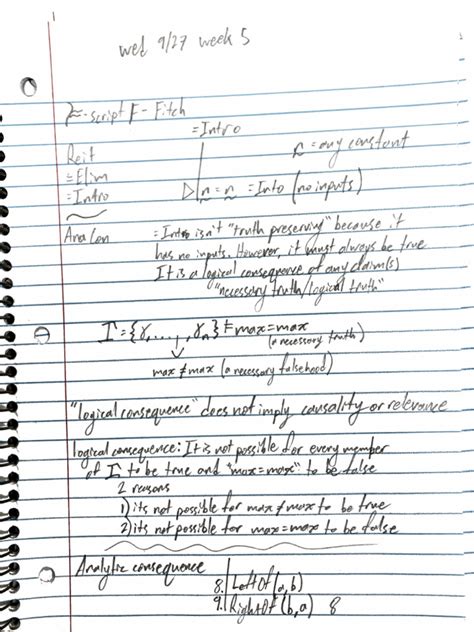 wed 9/27 week 5
-script F - Fitch
= Intro
n = any constant
Reit
= Elim
= Intro
▷ n = n = Into (no inputs)
Ana Con
= Intro isn't "truth preserving" because it
has no inputs. However, it must always be true
It is a logical consequence of any claim(s)
"necessary truth/logical truth"
Γ = {γ,..., γn} ⊨ max = max
(a necessary truth)
max ≠ max (a necessary falsehood)
"logical consequence" does not imply causality or relevance
logical consequence: It is not possible for every member
of Γ to be true and "max = max" to be false
2 reasons
1) its not possible for max ≠ max to be true
2) its not possible for max = max to be false
Analytic consequence
8. LeftOf(a, b)
9. RightOf(b, a) 8